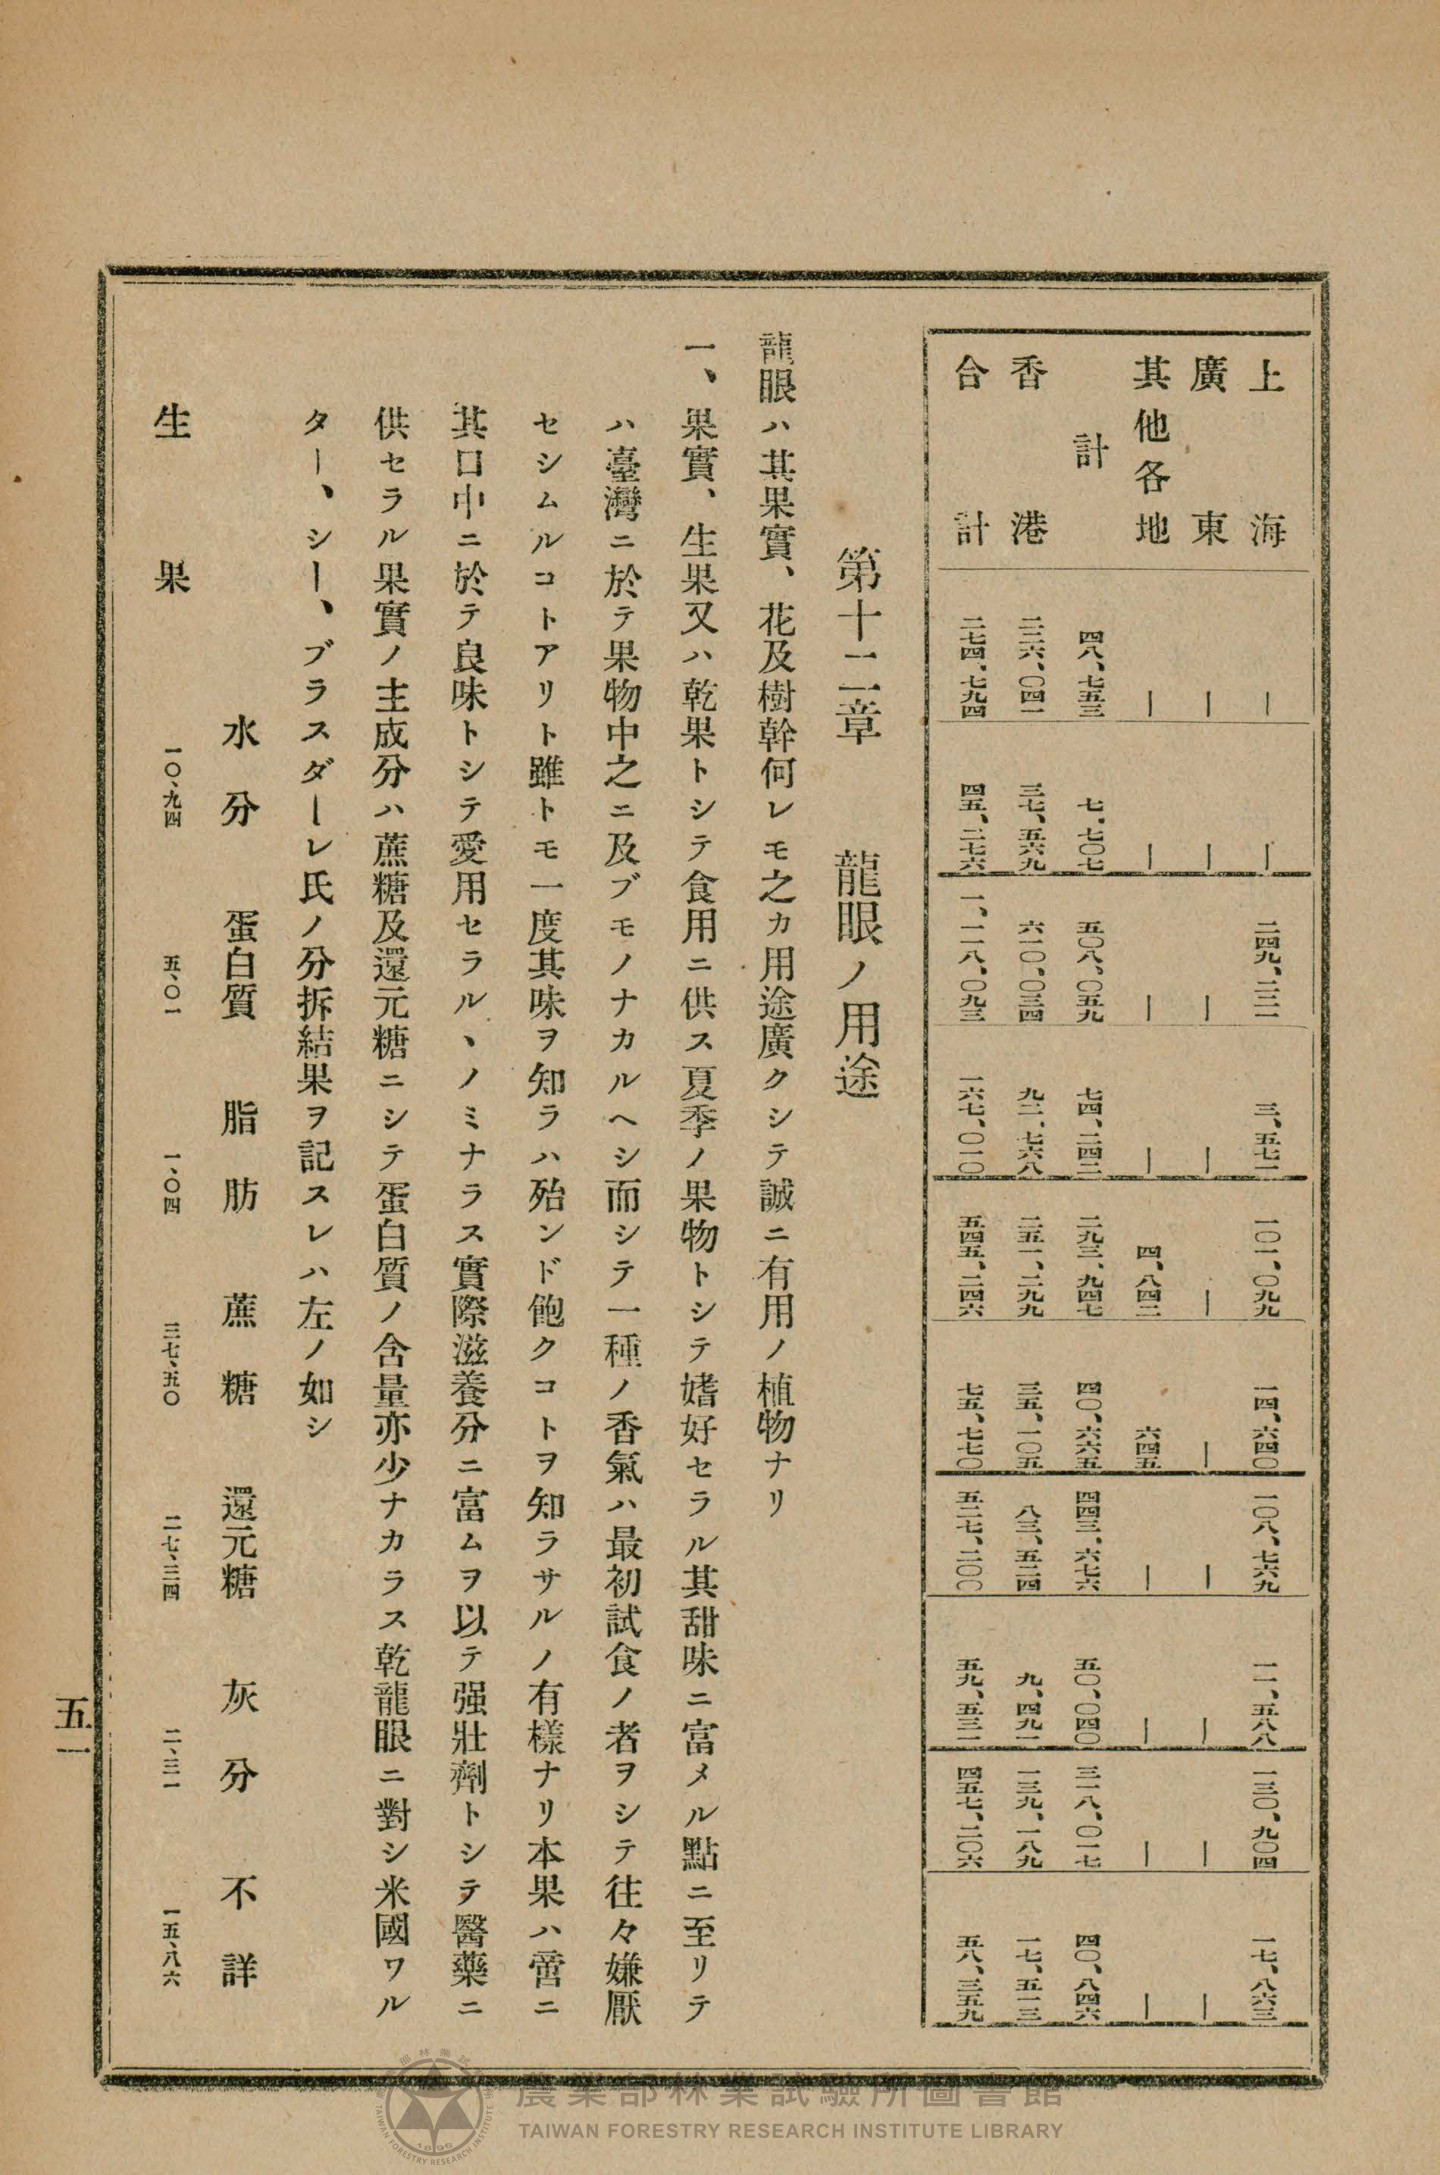 上海 ｜ ｜ 二四九、二二一 三、五七一 一〇一、〇九九 一四、六四〇 一〇八、七六九 一一、五八八 一三〇、九〇四 一七、八六三
廣東 ｜ ｜ ｜ ｜ ｜ ｜ ｜ ｜ ｜ ｜
其他各地 ｜ ｜ ｜ ｜ 四、八四二 六四五 ｜ ｜ ｜ ｜
計 四八、七五三 七、七〇七 五〇八、〇五九 七四、二四二 二九三、九四七 四〇、六六五 四四三、六七六 五〇、〇四〇 三一八、〇一七 四〇、八四六
香港 二二六、〇四一 三七、五六九 六一〇、〇三四 九二、七六八 二五一、二九九 三五、一〇五 八三、五二四 九、四九一 一三九、一八九 一七、五一三
合計 二七四、七九四 四五、二七六 一、一一八、〇九三 一六七、〇一〇 五四五、二四六 七五、七七〇 五二七、二〇〇 五九、五三一 四五七、二〇六 五八、三五九
第十二章 龍眼ノ用途
龍眼ハ其果實、花及樹幹何レモ之カ用途廣クシテ誠ニ有用ノ植物ナリ
一、果實、生果又ハ乾果トシテ食用ニ供ス夏季ノ果物トシテ嗜好セラル其甜味ニ富メル點ニ至リテ
ハ臺灣ニ於テ果物中之ニ及ブモノナカルヘシ而シテ一種ノ香氣ハ最初試食ノ者ヲシテ往々嫌厭
セシムルコトアリト雖トモ一度其味ヲ知ラハ殆ンド飽クコトヲ知ラサルノ有樣ナリ本果ハ啻ニ
其口中ニ於テ良味トシテ愛用セラルヽノミナラス實際滋養分ニ富ムヲ以テ强壯劑トシテ醫藥ニ
供セラル果實ノ主成分ハ蔗糖及還元糖ニシテ蛋白質ノ含量亦少ナカラス乾龍眼ニ對シ米國ワル
ター、シー、ブラスダーレ氏ノ分拆結果ヲ記スレハ左ノ如シ
水分 蛋白質 脂肪 蔗糖 還元糖 灰分 不詳
生果 一〇、九四 五、〇一 一、〇四 三七、五〇 二七、三四 二、三一 一五、八六
五一
農業部林業試驗所圖書館
TAIWAN FORESTRY RESEARCH INSTITUTE LIBRARY